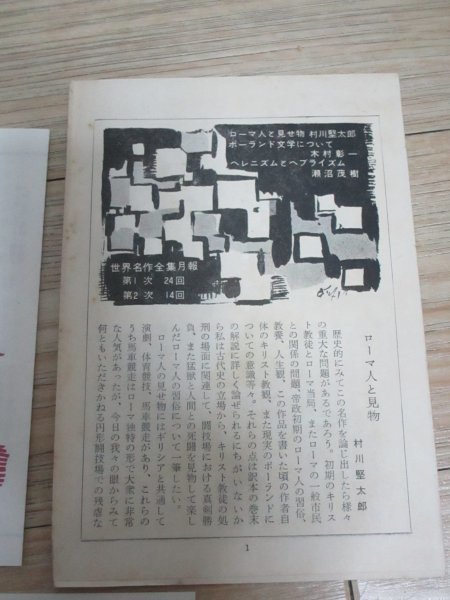 ローマ人と見せ物 村川堅太郎
ポーランド文学について
木村彰一
ヘレニズムとヘブライズム
瀬沼茂樹
世界名作全集月報
第1次 24回
第2次 14回
ローマ人と見物
村川堅太郎
歴史的にみてこの名作を論じ出したら様々
の重大な問題があるであろう。初期のキリス
ト教徒とローマ当局、またローマの一般市民
との関係の問題、帝政初期のローマ人の習俗、
教養、人生観、この作品を書いた頃の作者自
体のキリスト教観、また現実のポーランドに
ついての意識等々。それらの点は訳本の巻末
の解説に詳しく論ぜられるにちがいないか
ら私は古代史の立場から、キリスト教徒の処
刑の場面に関連して、闘技場における真剣勝
負、また猛獣と人間との死闘を見物して楽し
んだローマ人の習俗について一筆したい。
ローマ人の見せ物にはギリシアと共通して
演劇、体育競技、馬車競走があり、これらの
うち馬車競走はローマ独特の形で大衆に非常
な人気があったが、今日の我々の眼からみて
何ともいただきかねる円形闘技場での残虐な
1